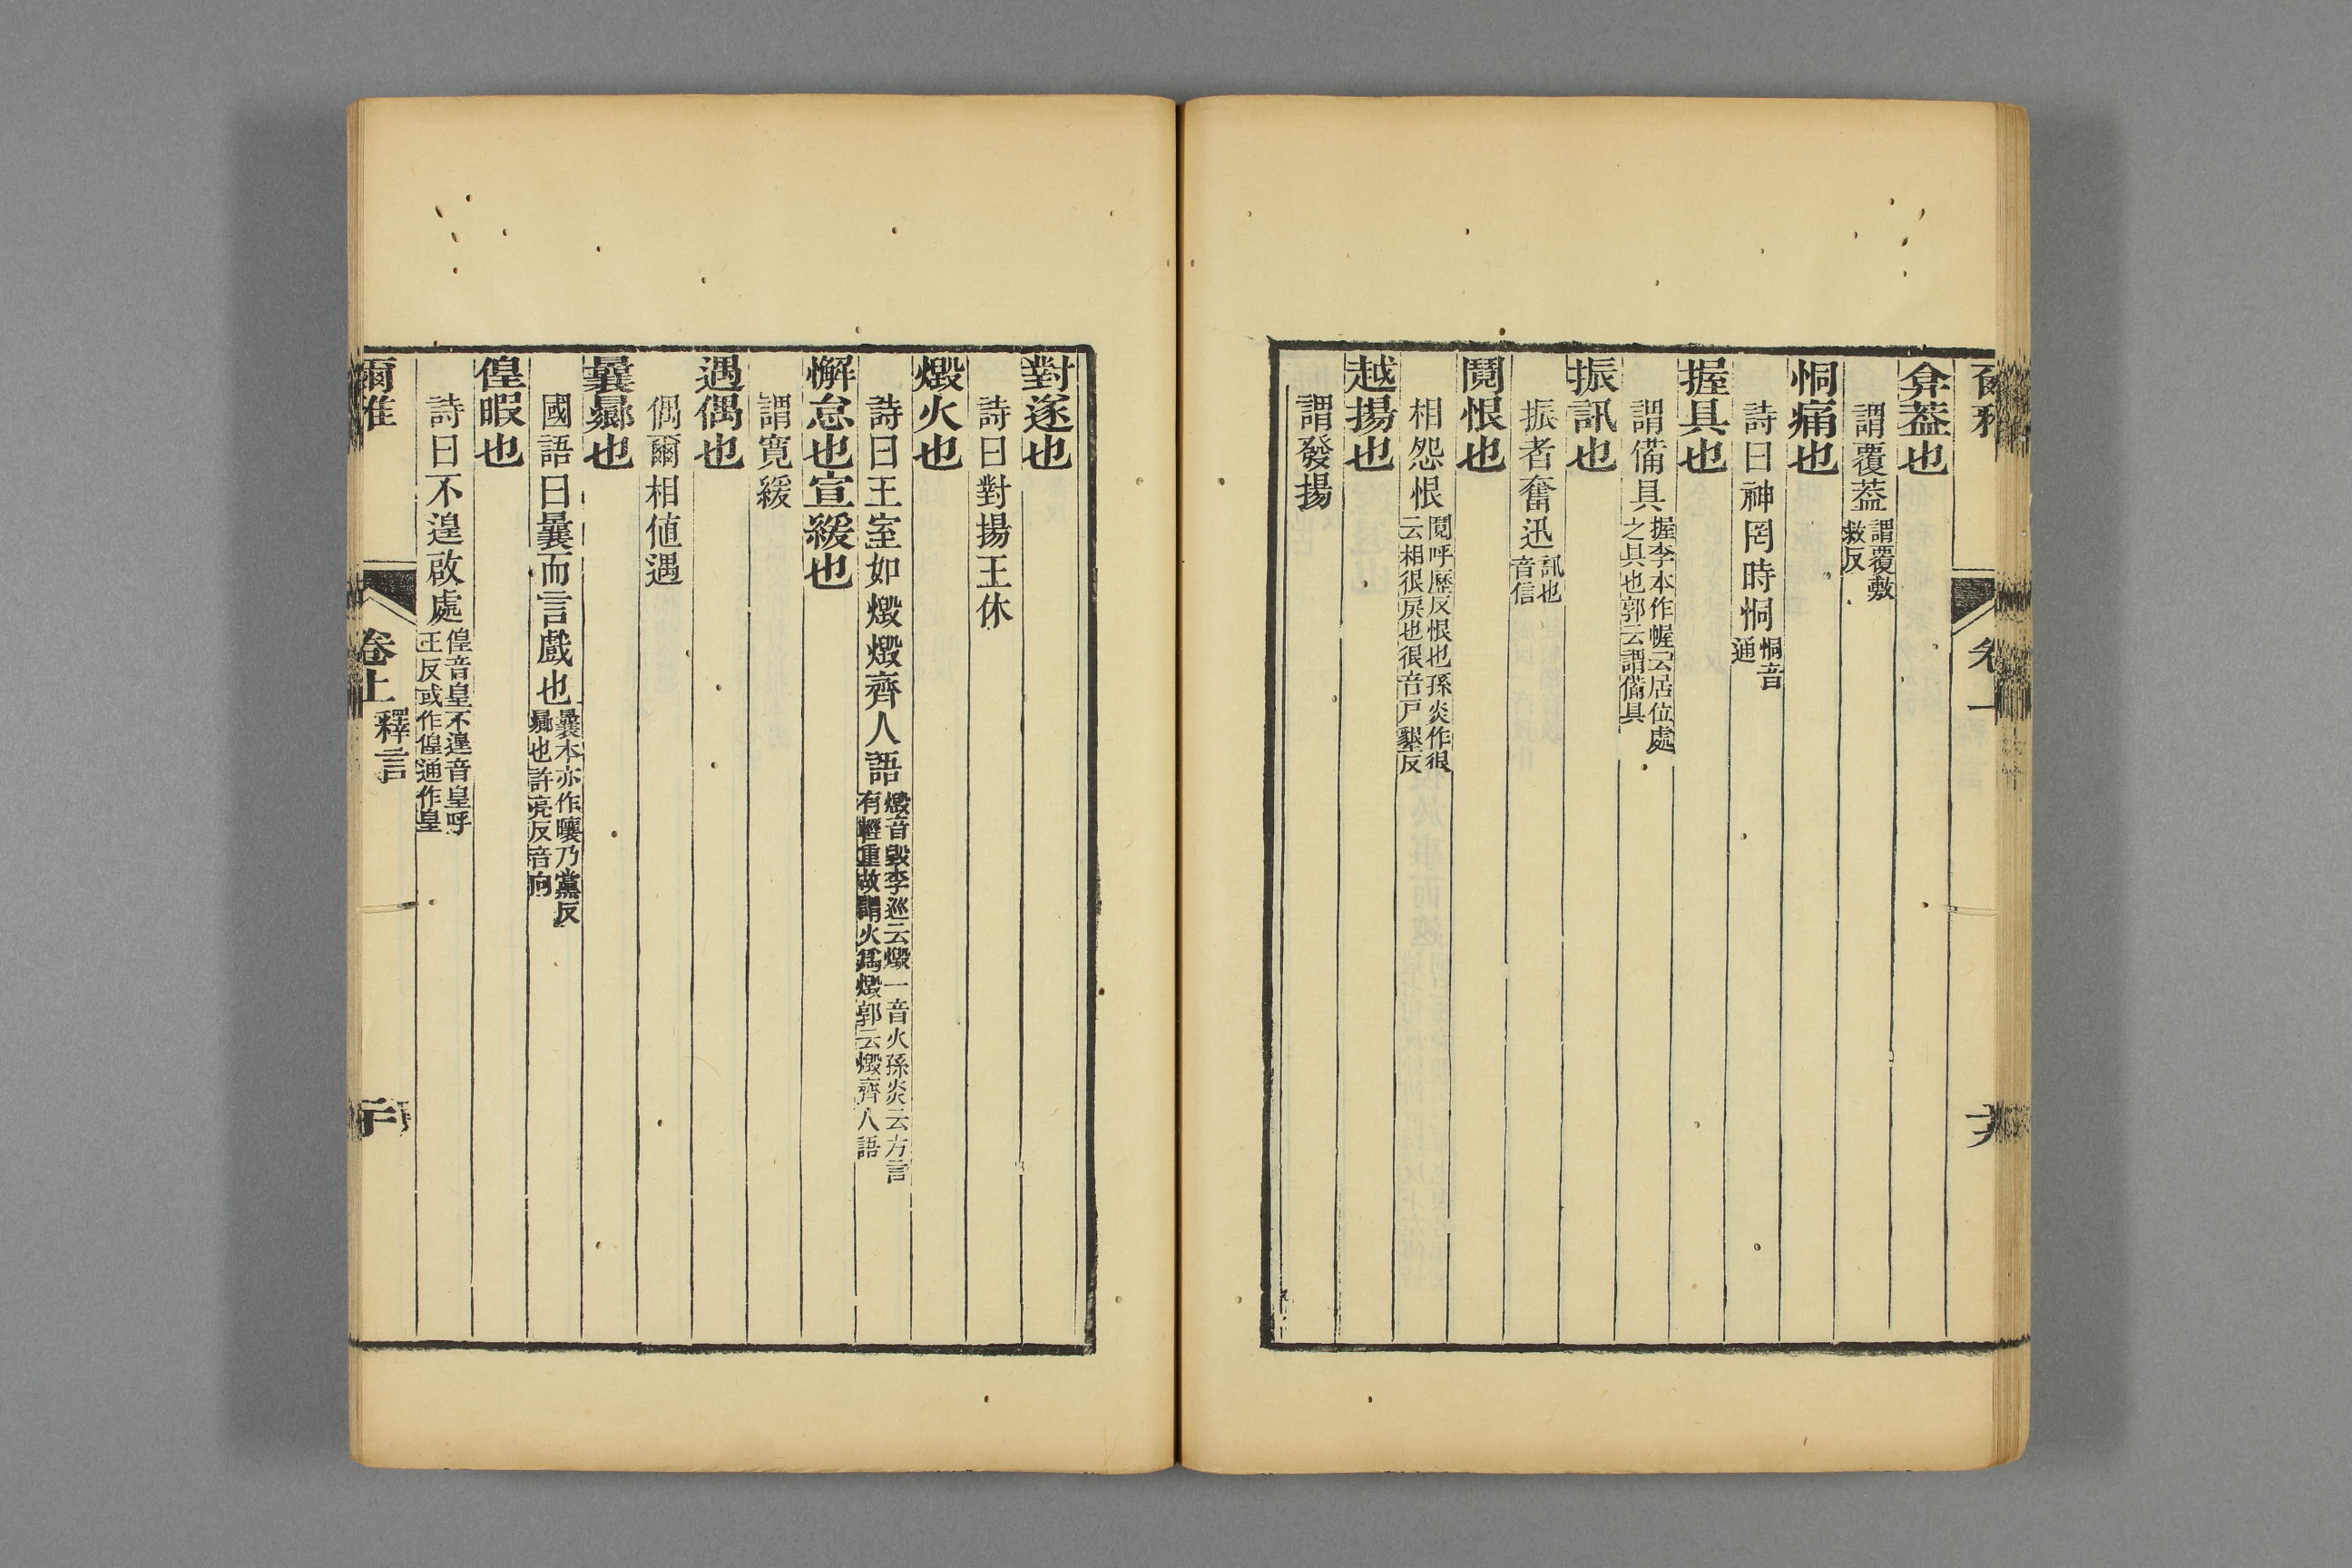 弇葢也
謂覆葢謂覆敷救反
恫痛也
詩曰神罔時恫恫音通
握具也
謂備具握李本作幄云居位處之具也郭云謂備具
振訊也
振者奮迅訊也音信
鬩恨也
相怨恨鬩呼歷反恨也孫炎作很云相很戾也很音戸墾反
越揚也
謂發揚
對遂也
詩曰對揚王休
燬火也
詩曰王室如燬燬齊人語燬音毀李巡云燬一音火孫炎云方言有輕重故謂火爲燬郭云燬齊人語
懈怠也宣緩也
謂寛緩
遇偶也
偶爾相値遇
曩曏也
國語曰曩而言戲也曩本亦作曩乃黨反曏也許亮反音向
偟暇也
詩曰不遑啟處偟音皇不遑音皇呼王反或作偟通作皇
爾雅
卷上
釋言